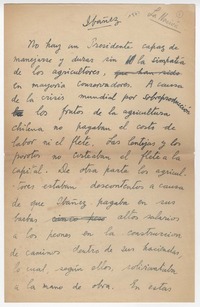 Ibáñez
No hay un Presidente capaz de
manejarse y durar sin la simpatía
de los agricultores, que han sido
en mayoría conservadores. A causa
de la crisis mundial por sobreproducción
los frutos de la agricultura
chilena no pagaban el costo de
labor ni el flete. Las lentejas y los
porotos no costeaban el flete a la
capital. De otra parte los agricul-
tores estaban descontentos a causa
de que Ibáñez pagaba en sus
barbas altos salarios
a los peones en la construcción
de caminos dentro de sus haciendas,
lo cual, según ellos, soliviantaba
a la mano de obra. En estas